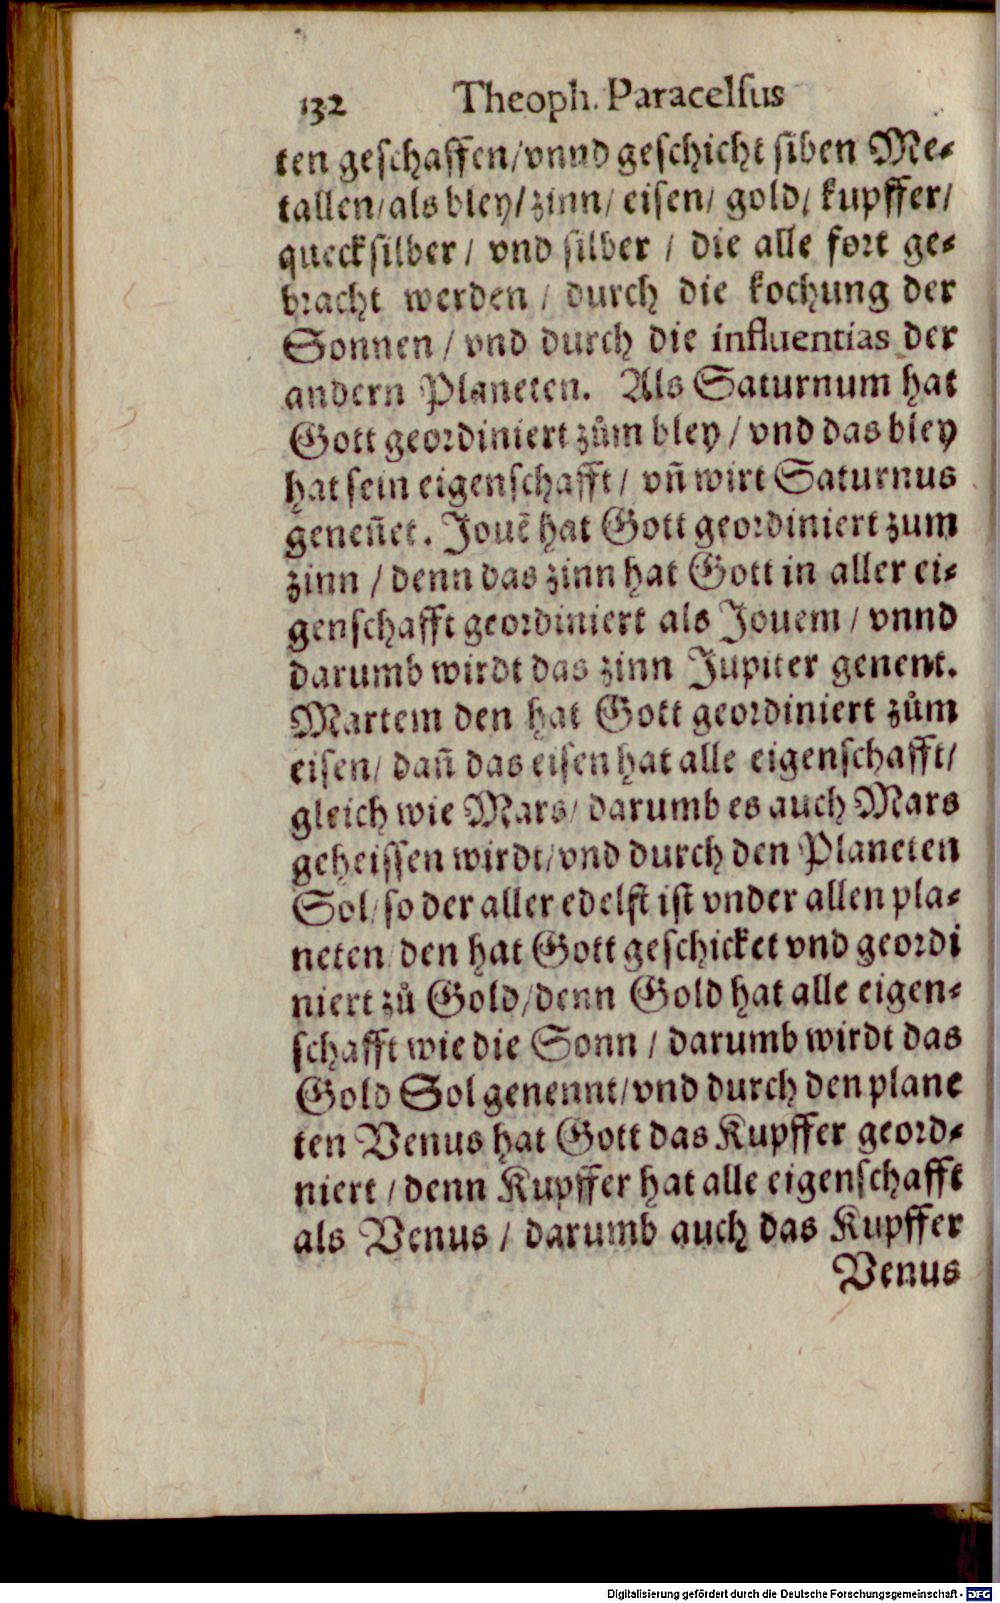 132 Theoph. Paracelsus
ten geschaffen/vnnd geschicht siben Me-
tallen/als bley/zinn/ eisen/ gold/ kupffer/
quecksilber / vnd silber / die alle fort ge-
bracht werden / durch die kochung der
Sonnen / vnd durch die influentias der
andern Planeten. Als Saturnum hat
Gott geordiniert zům bley / vnd das bley
hat sein eigenschafft / vñ wirt Saturnus
geneñet. Jouẽ hat Gott geordiniert zum
zinn / denn das zinn hat Gott in aller ei-
genschafft geordiniert als Jouem / vnnd
darumb wirdt das zinn Jupiter genent.
Martem den hat Gott geordiniert zům
eisen/ dañ das eisen hat alle eigenschafft/
gleich wie Mars/ darumb es auch Mars
geheissen wirdt/vnd durch den Planeten
Sol/so der aller edelst ist vnder allen pla-
neten/den hat Gott geschicket vnd geordi
niert zů Gold/denn Gold hat alle eigen-
schafft wie die Sonn / darumb wirdt das
Gold Sol genennt/vnd durch den plane
ten Venus hat Gott das Kupffer geord-
niert / denn Kupffer hat alle eigenschafft
als Venus / darumb auch das Kupffer
Venus
Digitalisierung gefördert durch die Deutsche Forschungsgemeinschaft - DFG